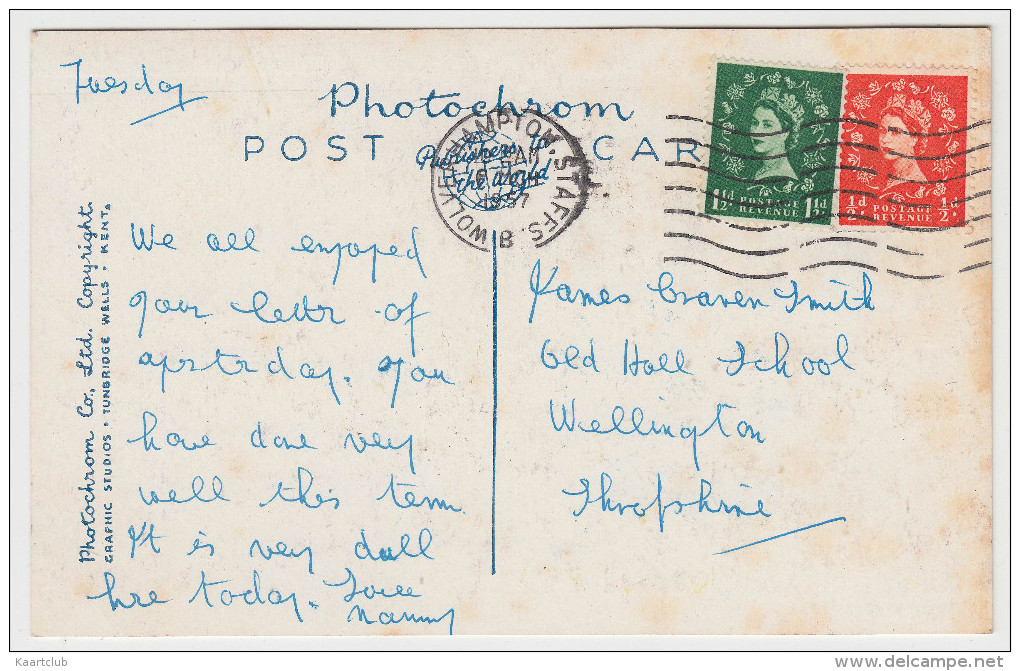 Tuesday
Photochrom
POST CARD
Publishers to
the World
WOLVERHAMPTON, STAFFS.
1957
B
1½d POSTAGE REVENUE 1½d
½d POSTAGE REVENUE ½d
Photochrom Co., Ltd. Copyright.
GRAPHIC STUDIOS • TUNBRIDGE WELLS • KENT.
We all enjoyed
your letter of
yesterday. You
have done very
well this term
It is very dull
here today. Love
Nanny
James Craven Smith
Old Hall School
Wellington
Shropshire
Kaartclub
delcampe.net